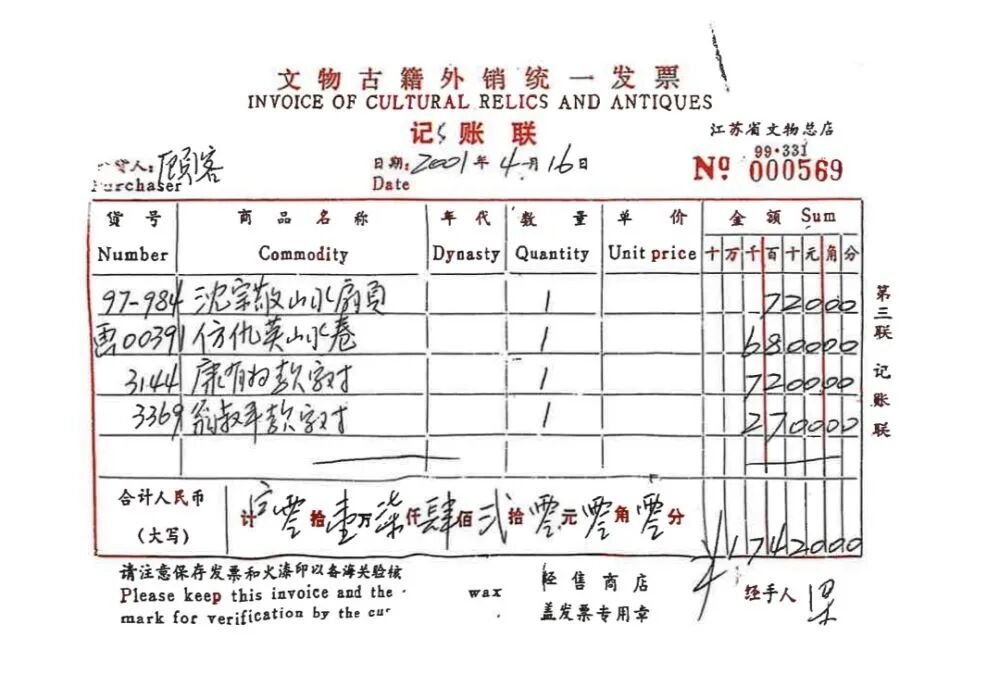 文物古籍外销统一发票
INVOICE OF CULTURAL RELICS AND ANTIQUES
记账联
江苏省文物总店
99·331
货人: 顾客
Purchaser
日期: 2001年4月16日
Date
Nº 000569
货号 商品名称 年代 数量 单价 金额 Sum
Number Commodity Dynasty Quantity Unit price 十万千百十元角分
97-984 沈宗敬山水扇页 1 72000
画00391 仿仇英山水卷 1 680000
3144 康有为款字对 1 720000
3369 翁叔平款字对 1 270000
合计人民币
(大写)
计 零拾壹万柒仟肆佰贰拾零元零角零分
¥1742000
第三联 记账联
请注意保存发票和火漆印以备海关验核
Please keep this invoice and the wax
mark for verification by the cu
经售商店
盖发票专用章
经手人